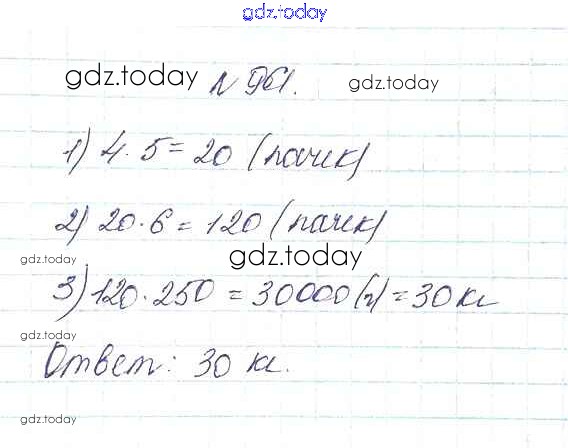 gdz.today
gdz.today № 961. gdz.today
1) 4 · 5 = 20 (пачек)
2) 20 · 6 = 120 (пачек)
gdz.today
gdz.today
3) 120 · 250 = 30000 (г) = 30 кг
gdz.today
Ответ: 30 кг.
gdz.today